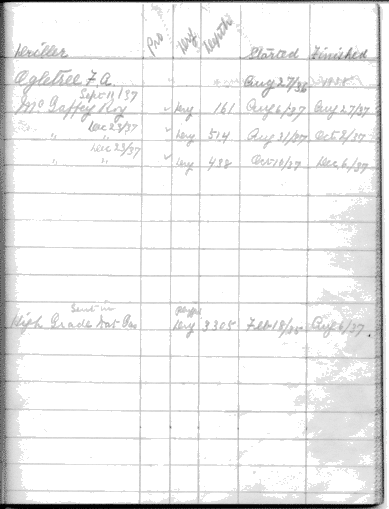 Driller Pro Dry Depth Started Finished
Ogletree F. A. Aug 27/36
Sept 11/37
McGaffey Roy ✓ Dry 161 Aug 6/37 Aug 27/37
Dec 23/37
" " ✓ Dry 514 Aug 31/37 Oct 8/37
Dec 23/37
" " ✓ Dry 498 Oct 10/37 Dec 6/37
Sent in
High Grade Nat Gas Dry 3305 Feb 18/35 Aug 6/37